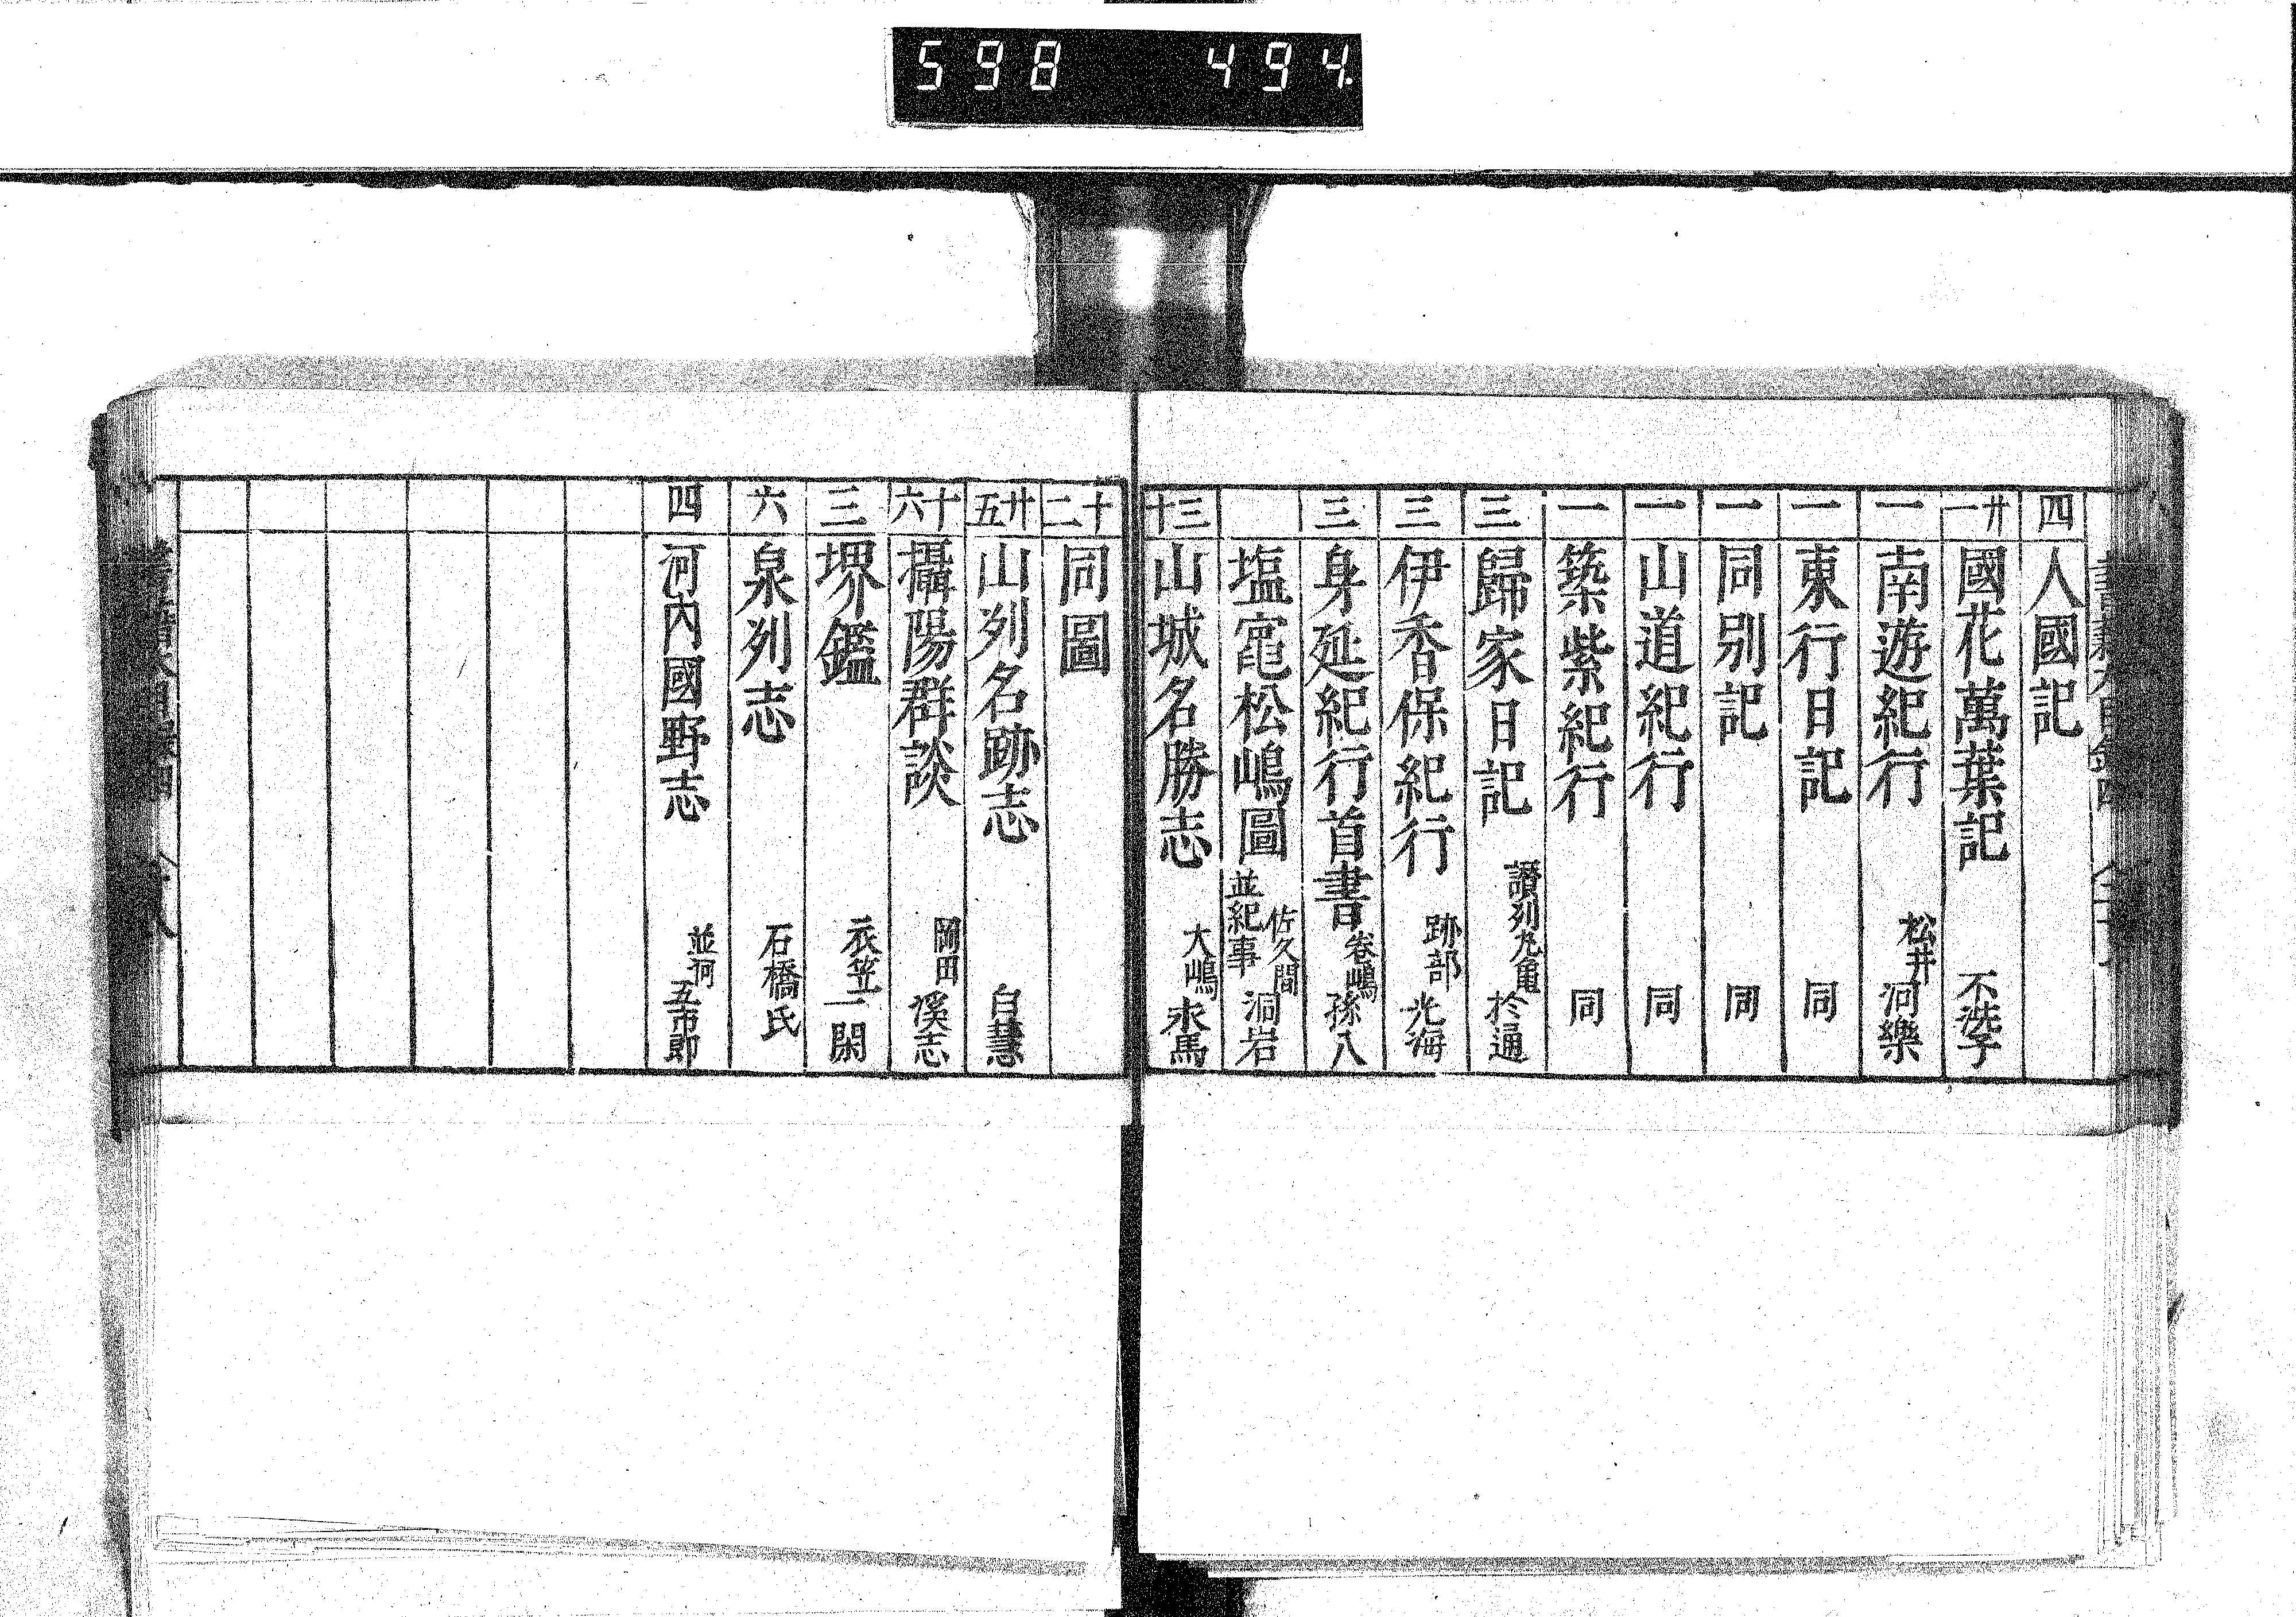 598 494.
四 人國記
廿一 國花萬葉記 不洗子
一 南遊紀行 松井河樂
一 東行日記 同
一 同別記 同
一 山道紀行 同
一 築紫紀行 同
三 歸家日記 讃列丸亀 於通
三 伊香保紀行 跡部光海
三 身延紀行首書 卷嶋孫八
塩竃松嶋圖 並紀事 佐久間洞岩
三十 山城名勝志 大嶋永馬
十二 同圖
廿五 山列名跡志 白慧
十六 攝陽群談 岡田溪志
三 堺鑑 衣笠一閑
六 泉列志 石橋氏
四 河内國野志 並河五市郎